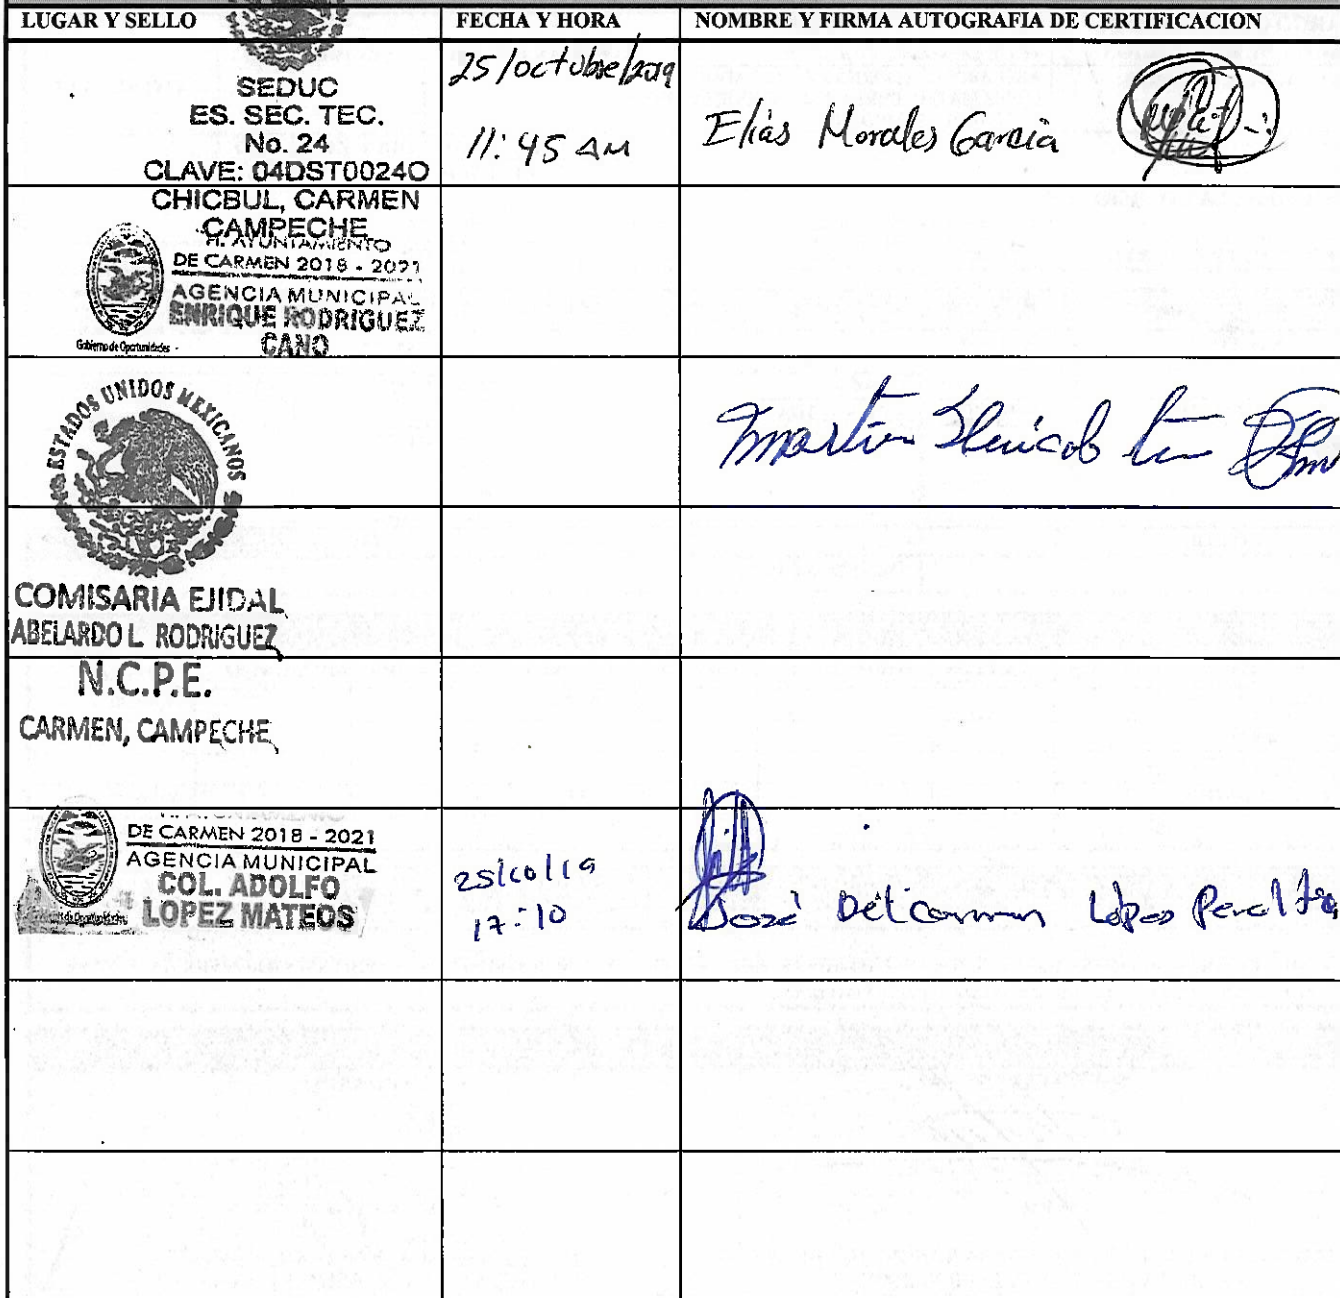 LUGAR Y SELLO
FECHA Y HORA
NOMBRE Y FIRMA AUTOGRAFIA DE CERTIFICACION
SEDUC
ES. SEC. TEC.
No. 24
CLAVE: 04DST0024O
CHICBUL, CARMEN
CAMPECHE
25/octubre/2019
11:45 AM
Elías Morales Garcia
H. AYUNTAMIENTO
DE CARMEN 2018 - 2021
AGENCIA MUNICIPAL
ENRIQUE RODRIGUEZ
CANO
Gobierno de Oportunidades
ESTADOS UNIDOS MEXICANOS
COMISARIA EJIDAL
ABELARDO L. RODRIGUEZ
N.C.P.E.
CARMEN, CAMPECHE
Martin
H. AYUNTAMIENTO
DE CARMEN 2018 - 2021
AGENCIA MUNICIPAL
COL. ADOLFO
LOPEZ MATEOS
25/10/19
17:10
José Del carmen López Peralta